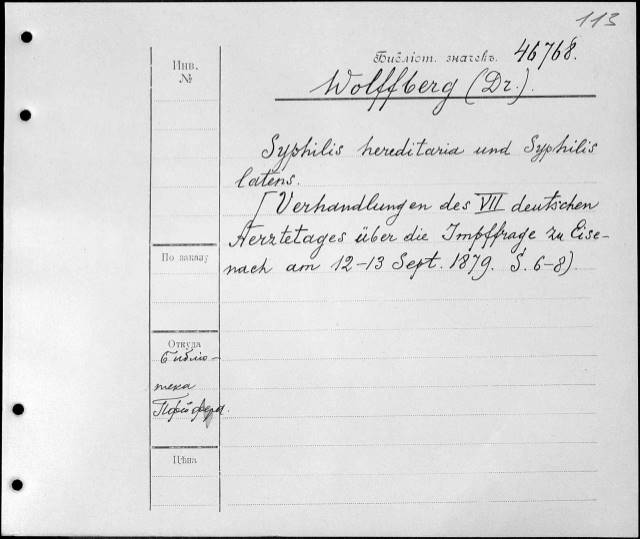 113
Инв.
№
Библіот. значекъ. 46768.
Wolffberg (Dr.).
Syphilis hereditaria und Syphilis
latens.
[Verhandlungen des VII deutschen
Aerztetages über die Impffrage zu Eise-
nach am 12-13 Sept. 1879. S. 6-8)
По заказу
Откуда
Библіо-
тека
Пфейфера.
Цѣна